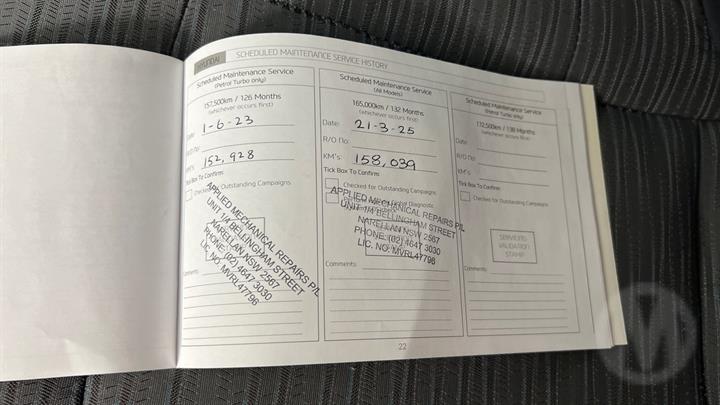 HYUNDAI SCHEDULED MAINTENANCE SERVICE HISTORY
Scheduled Maintenance Service
(Petrol Turbo only)
157,500km / 126 Months
(whichever occurs first)
Date: 1-6-23
R/O No:
KM's: 152,928
Tick Box To Confirm:
Checked for Outstanding Campaigns
APPLIED MECHANICAL REPAIRS P/L
UNIT 1/4 BELLINGHAM STREET
NARELLAN NSW 2567
PHONE: (02) 4647 3030
LIC. NO. MVRL47796
Comments:
Scheduled Maintenance Service
(All Models)
165,000km / 132 Months
(whichever occurs first)
Date: 21-3-25
R/O No:
KM's: 158,039
Tick Box To Confirm:
Checked for Outstanding Campaigns
APPLIED MECHANICAL REPAIRS P/L
UNIT 1/4 BELLINGHAM STREET
NARELLAN NSW 2567
PHONE: (02) 4647 3030
LIC. NO. MVRL47796
Comments:
Scheduled Maintenance Service
(Petrol Turbo only)
172,500km / 138 Months
(whichever occurs first)
Date:
R/O No:
KM's:
Tick Box To Confirm:
Checked for Outstanding Campaigns
SERVICING
VALIDATION
STAMP
Comments:
22